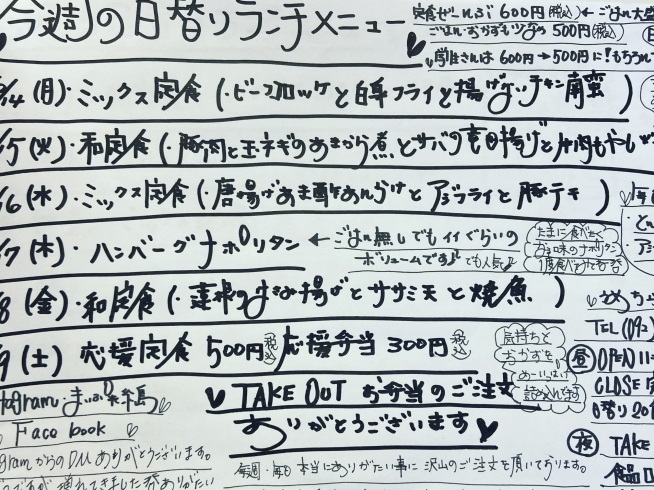 今週の日替りランチメニュー
定食ぜーんぶ 600円(税込) ← ごはん大盛
ごはん・おかずも 500円(税込)
学生さんは 600円→500円に!もちろん
/4 (月)・ミックス定食 (・ビーフコロッケと白身フライと揚げないチキン南蛮 )
/5 (火)・和定食 (・豚肉と玉ネギのあまから煮とサバの竜田揚げと
/6 (水)・ミックス定食 (・唐揚げあま酢あんかけとアジフライと豚テキ )
/7 (木)・ハンバーグナポリタン ← ごはん無しでもイイぐらいの
ボリュームです でも人気
たまに食べたく
ナポリタン
1度食べてみて
/8 (金)・和定食 (・蓮根のはさみ揚げとササミ天と焼魚 )
/9 (土) 応援定食 500円(税込) 応援弁当 300円(税込)
気持ちと
おかずを
めーいっぱい
詰め込んでます
TEL (092)
昼 OPEN 11
CLOSE
日替り20
夜 TAKE
tagram・まいぷれ糸島
Face book
gramからのDMありがとうございます。
TAKE OUT お弁当のご注文
ありがとうございます
毎週・毎日 本当にありがたい事に 沢山のご注文を頂いております。